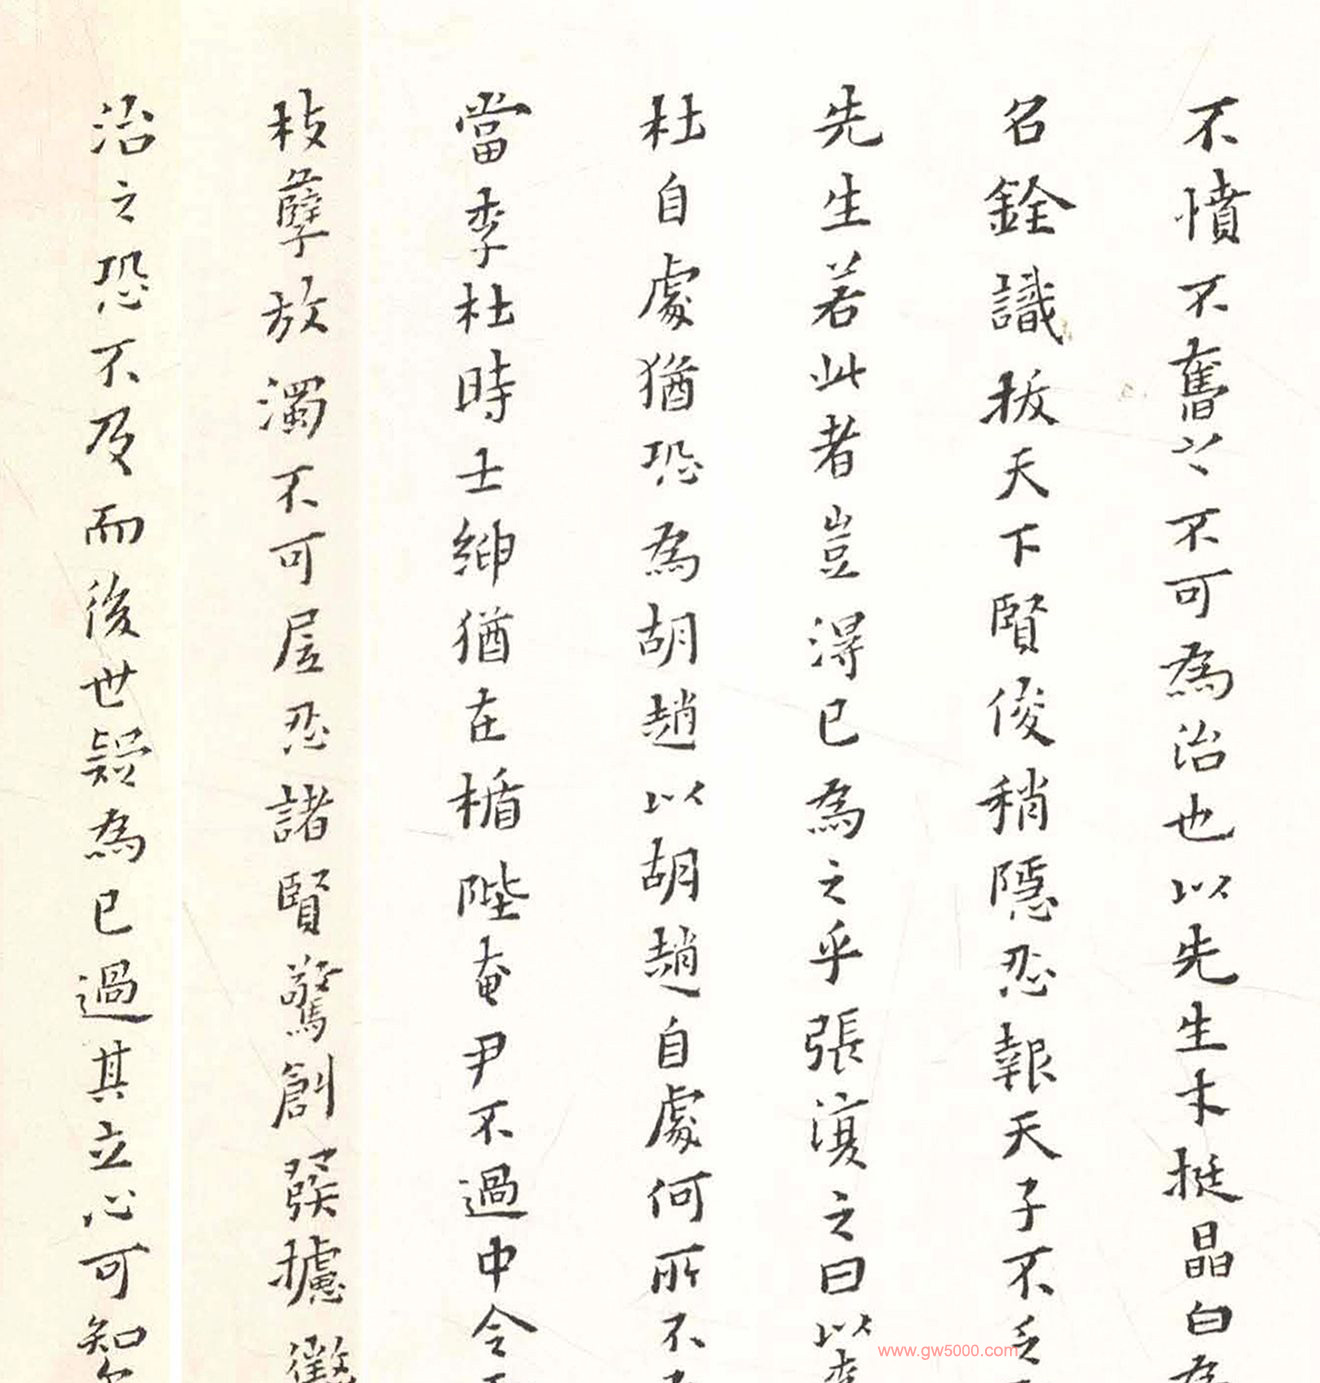 不憤不奮々不可為治也以先生木挺晶白為
名銓識拔天下賢俊稍隱忍報天子不乏
先生若此者豈得已為之乎張溥之曰以李
杜自處猶恐為胡趙以胡趙自處何所不
當李杜時士紳猶在楯陛奄尹不過中令
枝孽放濁不可屋忍諸賢驚創發攄徵
治之恐不及而後世疑為已過其立心可知
www.gw5000.com